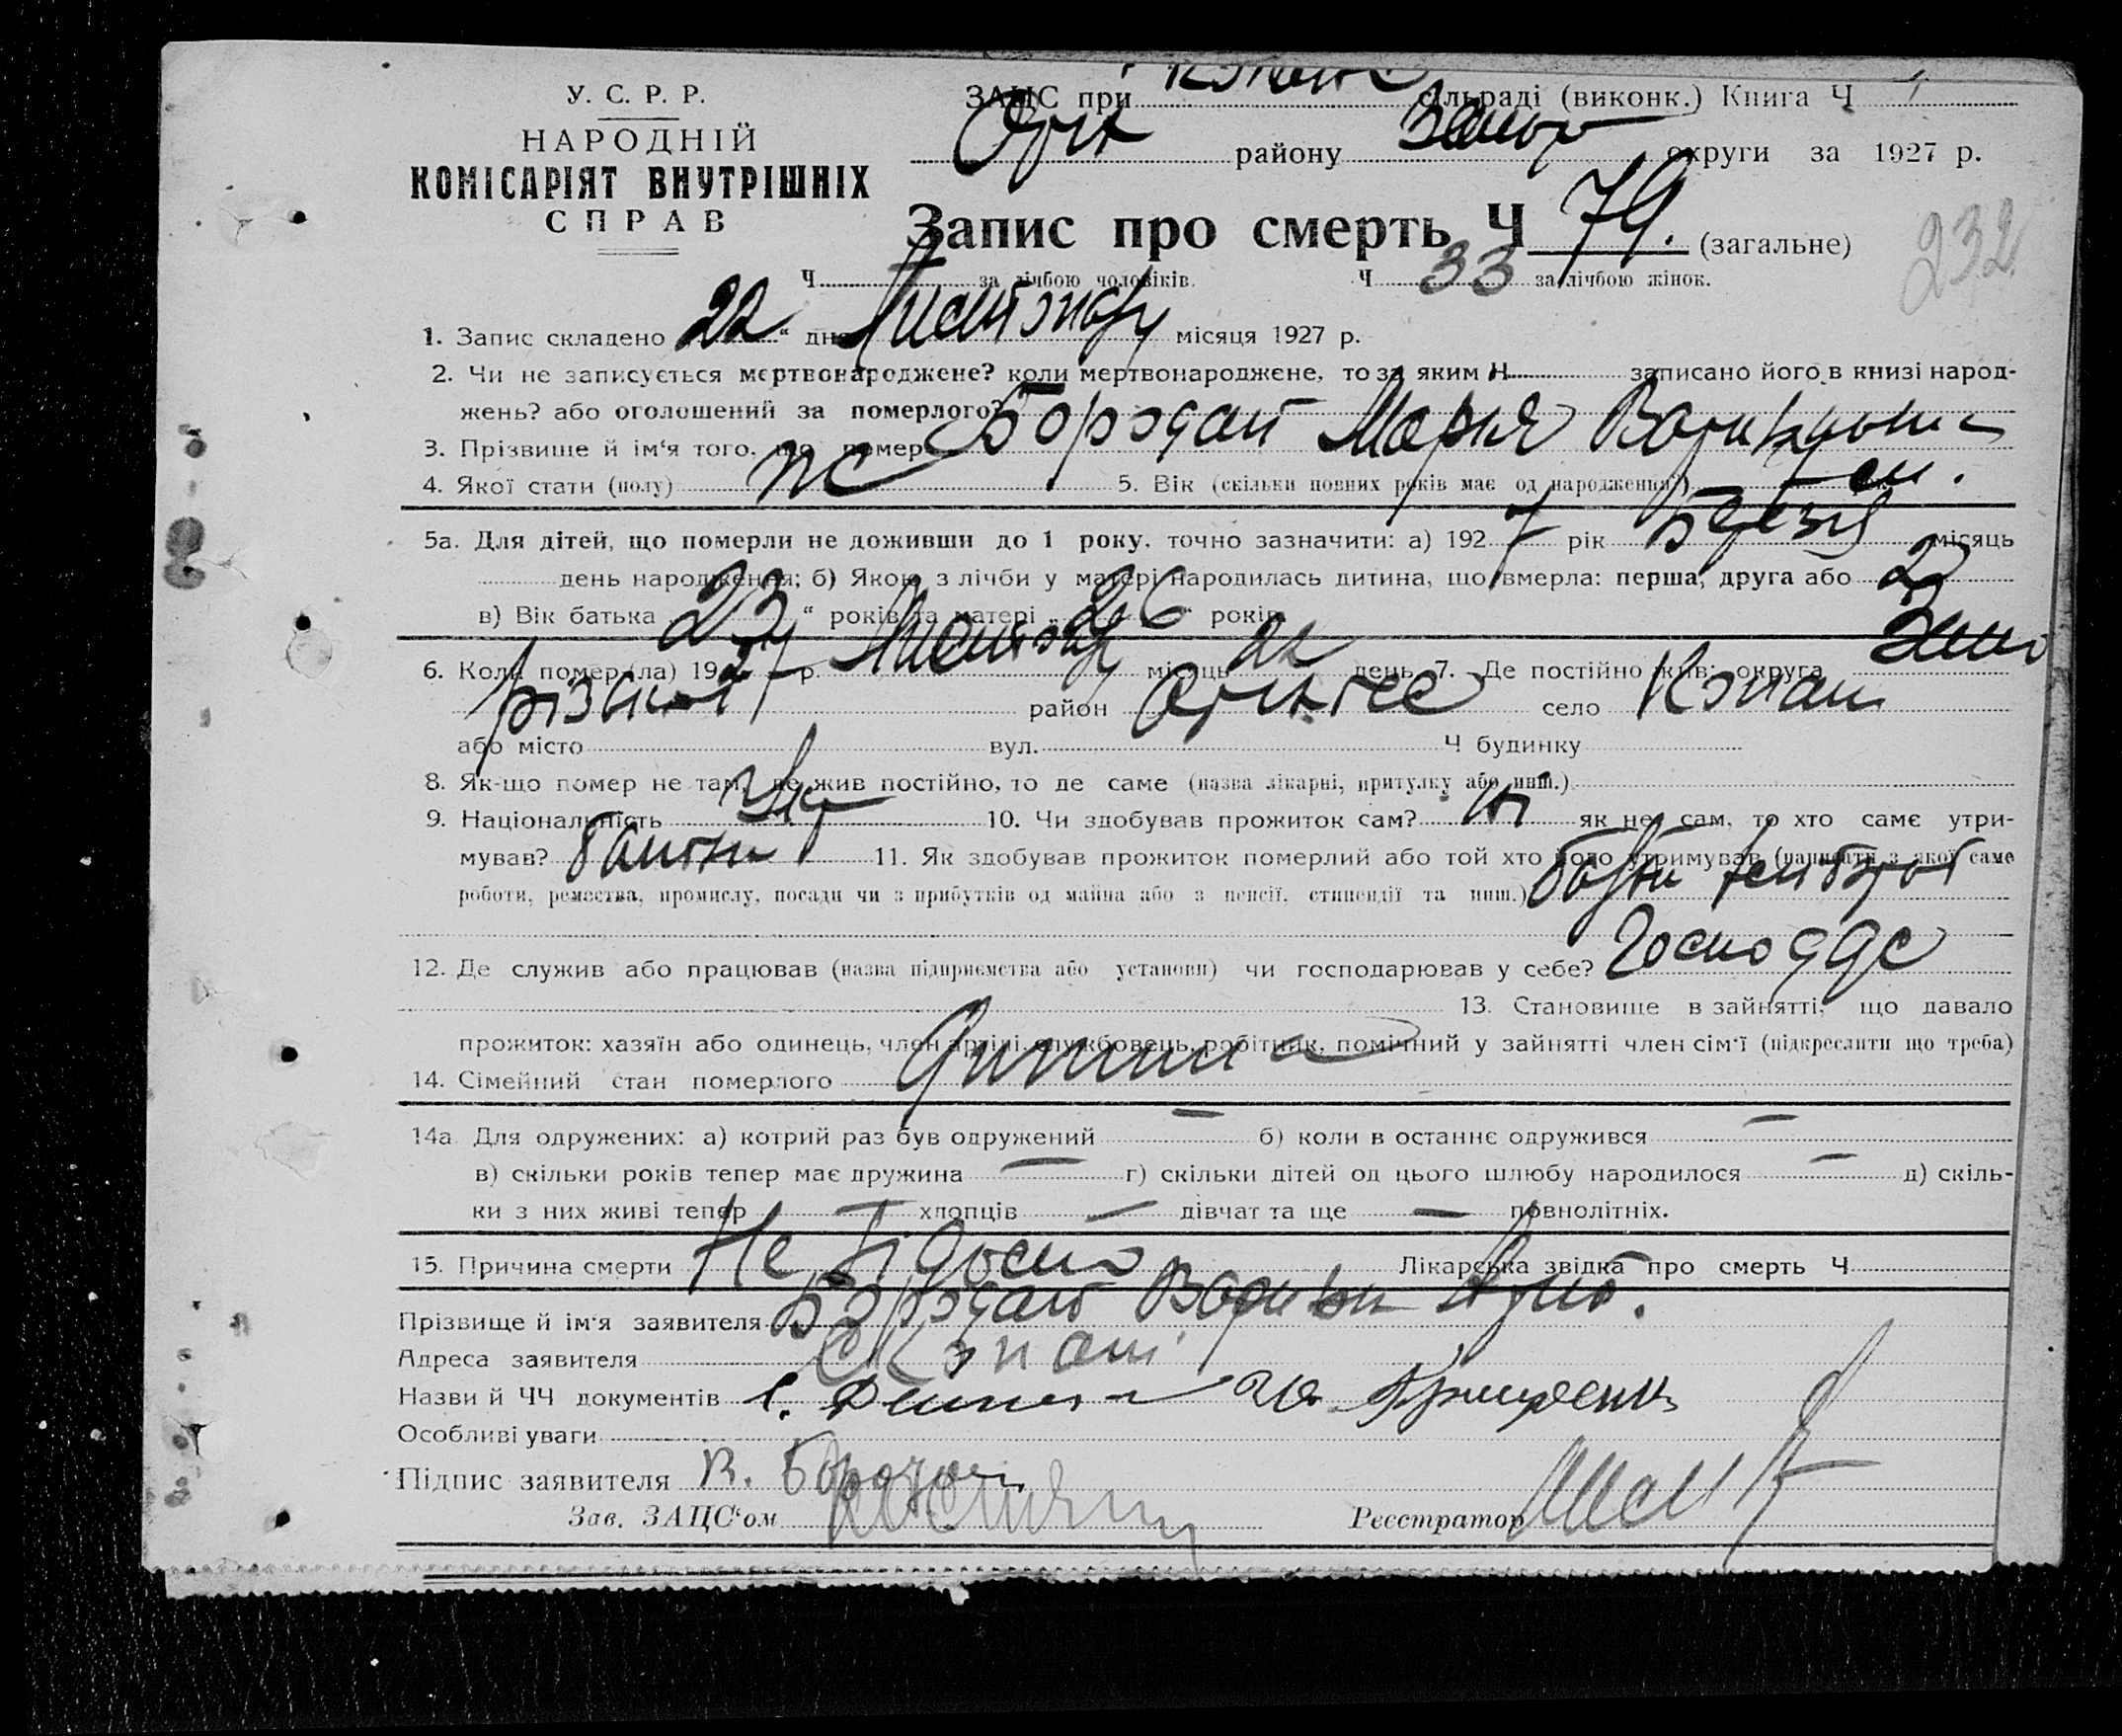 У. С. Р. Р.
НАРОДНІЙ
КОМІСАРІЯТ ВНУТРІШНІХ
СПРАВ
ЗАЦС при сільраді (виконк.) Книга Ч
Оріх району Запор округи за 1927 р.
Запис про смерть Ч 79. (загальне)
232
Ч за лічбою чоловіків. Ч 33 за лічбою жінок.
1. Запис складено 22 “ дня Листопаду місяця 1927 р.
2. Чи не записується мертвонароджене? коли мертвонароджене, то за яким Н записано його в книзі народ-
жень? або оголошений за померлого?
3. Прізвище й ім‘я того, що помер Бородай Мария
4. Якої стати (полу) ж 5. Вік (скільки повних років має од народження?)
5а. Для дітей, що померли не доживши до 1 року, точно зазначити: а) 1927 рік Березня місяць
день народження; б) Якою з лічби у матері народилась дитина, що вмерла: перша, друга або 2
в) Вік батька 23 “ років та матері „ 26 “ років.
6. Коли помер (ла) 1927 р. Листопаду місяць 22 день 7. Де постійно жив: округа Запо
різької район Оріхівсе село Копані
або місто вул. Ч будинку
8. Як-що помер не там, де жив постійно, то де саме (назва лікарні, притулку або инш.)
9. Національність Укр 10. Чи здобував прожиток сам? ні як не сам, то хто саме утри-
мував? батьки 11. Як здобував прожиток померлий або той хто його утримував (написати з якої саме
роботи, ремества, промислу, посади чи з прибутків од майна або з пенсії, стипендії та инш.) батьки хліборобст
12. Де служив або працював (назва підприємства або установи) чи господарював у себе? Господарс
13. Становище в зайнятті, що давало
прожиток: хазяїн або одинець, член артілі, службовець, робітник, помічний у зайнятті член сім‘ї (підкреслити що треба)
14. Сімейний стан померлого Дитина
14а. Для одружених: а) котрий раз був одружений — б) коли в останнє одружився —
в) скільки років тепер має дружина — г) скільки дітей од цього шлюбу народилося — д) скіль-
ки з них живі тепер — хлопців — дівчат та ще — повнолітніх.
15. Причина смерти Не відомо Лікарська звідка про смерть Ч
Прізвище й ім‘я заявителя Бородай
Адреса заявителя с Копані
Назви й ЧЧ документів
Особливі уваги
Підпис заявителя В. Бородай
Зав. ЗАЦС‘ом
Реєстратор